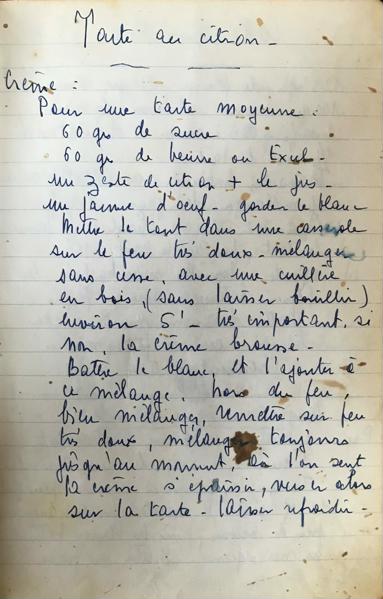 Tarte au citron -
Crème :
Pour une tarte moyenne :
60 grs de sucre
60 grs de beurre ou Excel -
un zeste de citron + le jus -
un jaune d'oeuf - garder le blanc
Mettre le tout dans une casserole
sur le feu très doux - mélanger
sans cesse, avec une cuillère
en bois, (sans laisser bouillir)
environ 5' - très important, si
non, la crème brousse -
Battre le blanc, et l'ajouter à
ce mélange, hors du feu,
bien mélanger, remettre sur feu
très doux, mélanger toujours
jusqu'au moment, où l'on sent
la crème s'épaissir, verser alors
sur la tarte - laisser refroidir -